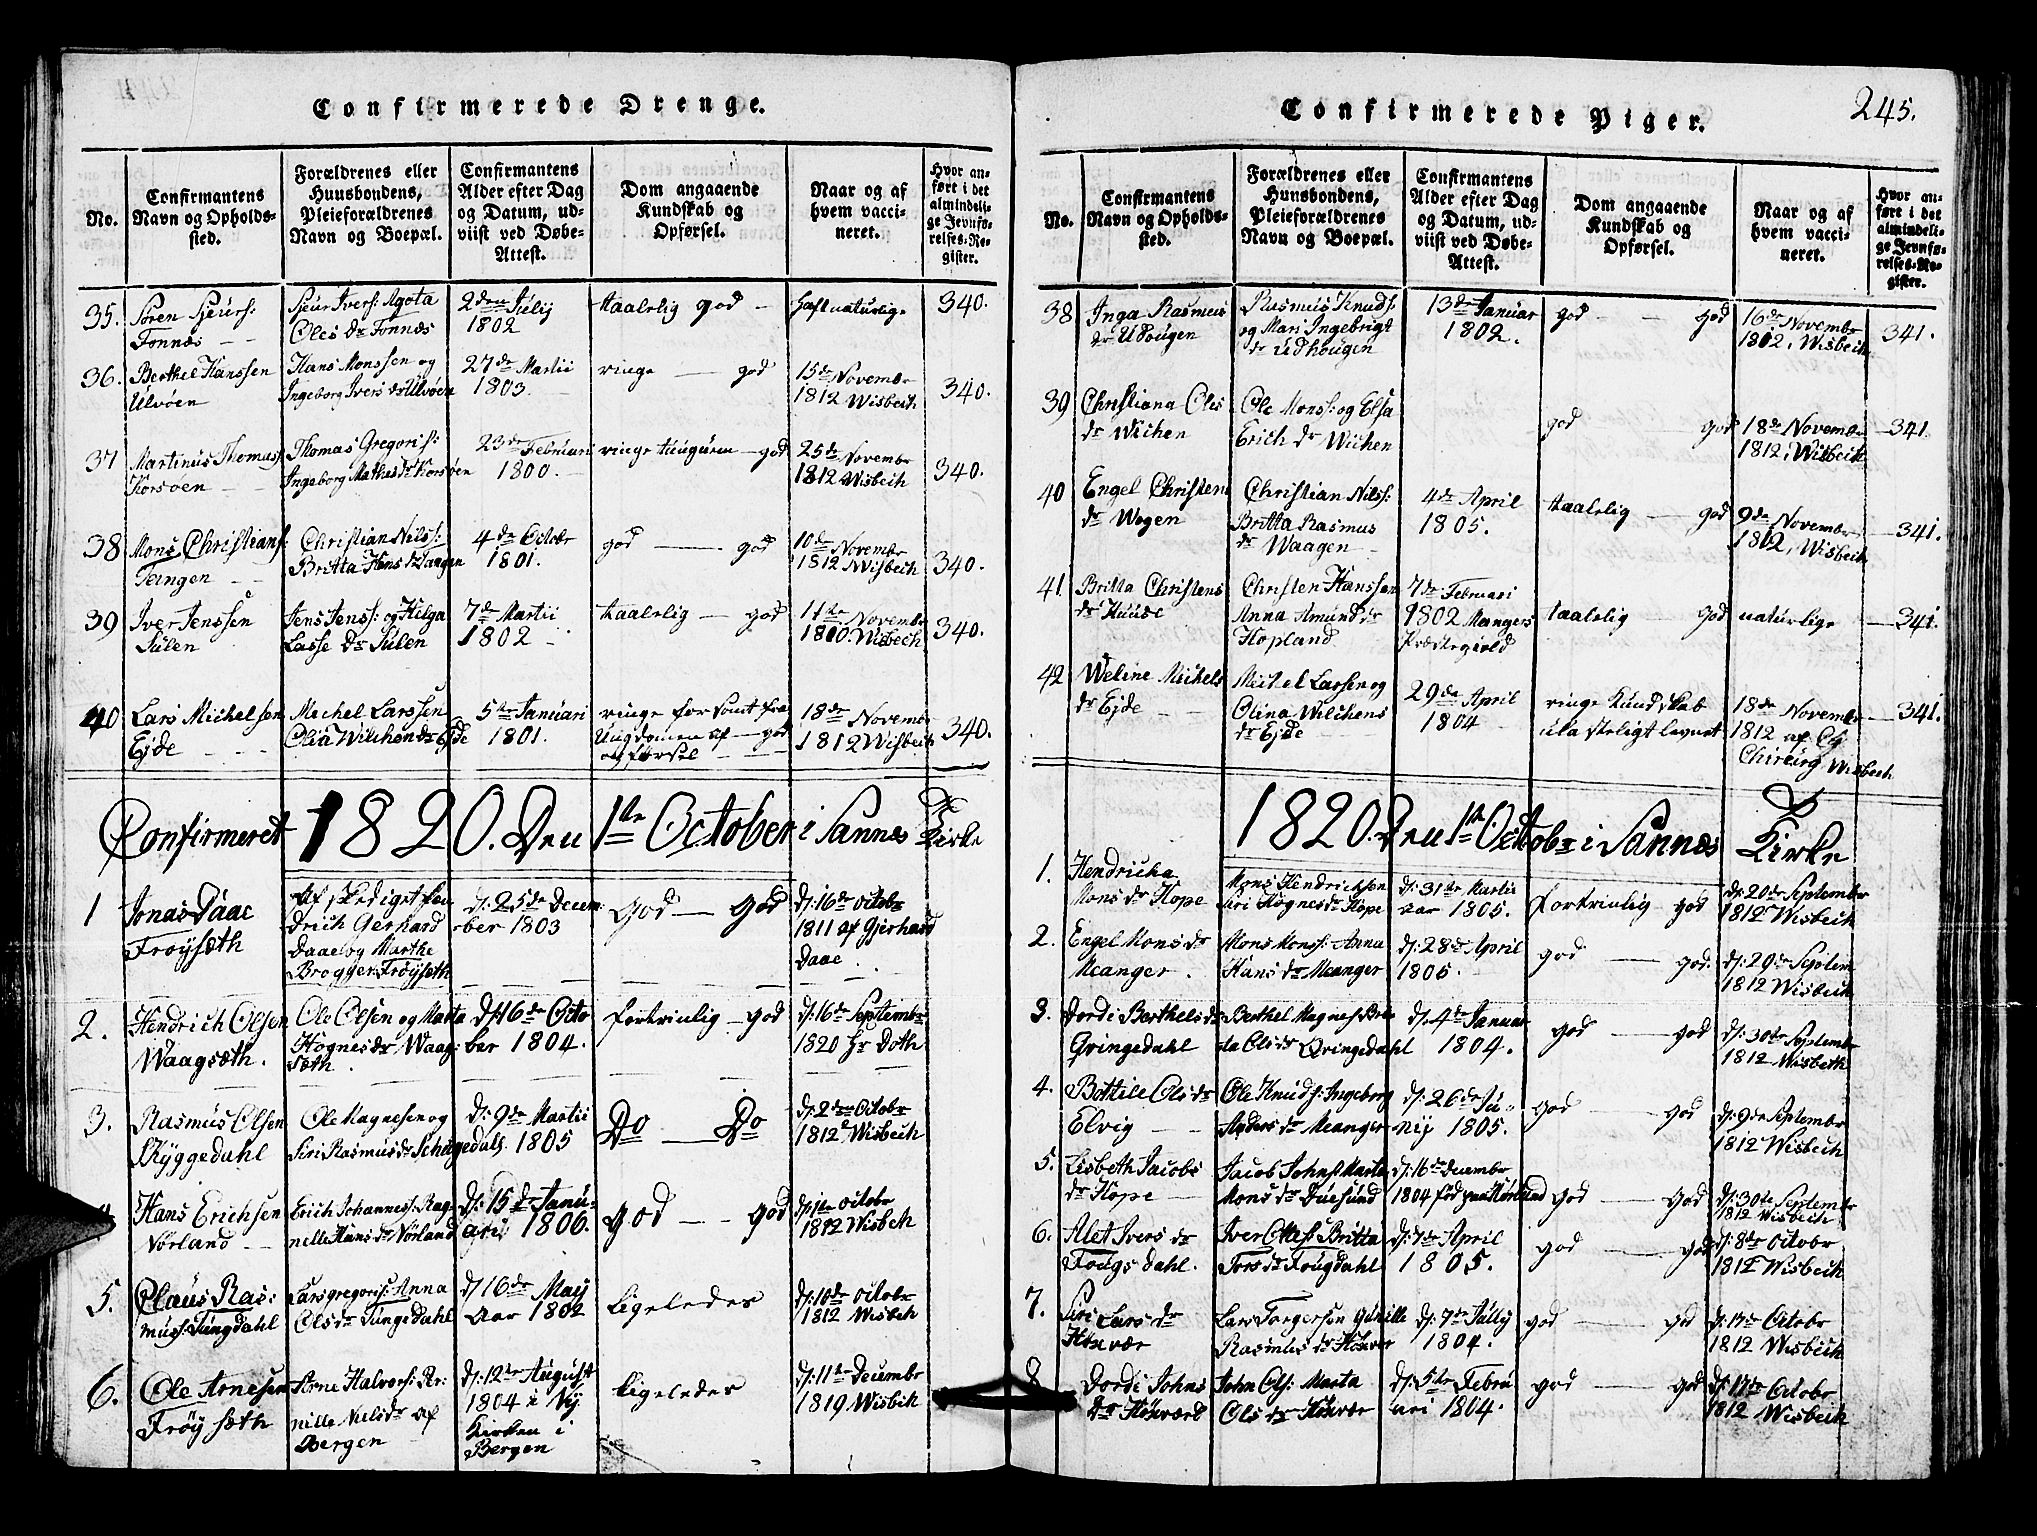 Confirmerede Drenge.
No.
Confirmantens
Navn og Opholds-
sted.
Forældrenes eller
Huusbondens,
Pleieforældrenes
Navn og Boepæl.
Confirmantens
Alder efter Dag
og Datum, ud-
viist ved Døbe-
Attest.
Dom angaaende
Kundskab og
Opførsel.
Naar og af
hvem vacci-
neret.
Hvor an-
ført i det
almindeli-
ge Jevnfø-
relses-Re-
gister.
35.
Søren Sjeurs:
Tonnæs
Sjeur Ivers: Agota
Oles Dr Tonnæs
2den Julij
1802
taalelig god
haft naturlige
340.
36.
Berthel Hanssen
Ulvøen
Hans Monssen og
Ingeborg Ivers dr Ulvøen
27de Martii
1803.
ringe — god
15de Novembr
1812 Wisbech
340.
37
Martinus Thomas:
Korsøen
Thomas Gregoris:
Ingeborg Mathes dr Korsøen
23de Februari
1800.
ringe — god
25de Novembr
1812 Wisbech
340.
38
Mons Christians:
Tangen
Christian Nils:
Britta Hans dr Tangen
4de Octobr
1801.
god — god
10de Novembr
1812 Wisbech
340.
39
Iver Jenssen
Sulen
Jens Jens: og Helga
Lasse Dr Sulen
7de Martii
1802
taalelig — god
1810 Wisbech
340.
40
Lars Michelsen
Ejde
Michel Larssen
Olia Wilchens dr Ejde
5te Januari
1801.
ringe forsømt fra
Ungdomen af — god
opførsel
18de Novembr
1812 Wisbech
340.
Confirmeret 1820. Den 1te October i Sannæs Kirke
1
Jonas Daae
Frøysæth
drich Gerhard
Daae og Marthe
Brøgger Frøysæth
d: 25de Decem
ber 1803
God — God
d: 16de octobr
1811 af Gjerhard
Daae
2.
Hendrich Olsen
Waagsæth.
Ole Olsen og Marta
Hognes dr Waag:
sæth
d: 16de Octo
ber 1804.
fortrinlig — god
d: 16de Septembr
1820 Hr Doth
3.
Rasmus Olsen
Skyggedahl
Ole Magnesen og
Siri Rasmus dr
d: 9de Martii
1805
Do — Do
d: 2den Octobr
1812 Wisbech
Hans Erichsen
Nørland
Erich Johannes: Rag-
nelle Hans dr Nørland
d: 15de Janu-
ari 1806.
god — god
d: 1te octobr
1812 Wisbech
5.
Claus Ras:
mus: Tungdahl
Lars gregoris: Anna
Ols dr Tungedahl
d: 16de May
Aar 1802
Ligeledes
d: 10de octobr
1812 Wisbech
6.
Ole Arnesen
Frøysæth
Arne Halvors: Per:
nille Niels dr af
Bergen
d: 12te August
1804 i Ny
Kirken i
Bergen
Ligeledes
d: 11te Decembr
1819 Wisbech
Confirmerede Piger.
245.
No.
Confirmantens
Navn og Opholds-
sted.
Forældrenes eller
Huusbondens,
Pleieforældrenes
Navn og Boepæl.
Confirmantens
Alder efter Dag
og Datum, ud-
viist ved Døbe-
Attest.
Dom angaaende
Kundskab og
Opførsel.
Naar og af
hvem vacci-
neret.
Hvor an-
ført i det
almindeli-
ge Jevnfø-
relses-Re-
gister.
38
Inga Rasmus
dr Udougen
Rasmus Knuds:
og Mari Ingebrigt
dr Udhougen
13de Januar
1802.
god — god
16de Novembr
1802, Wisbech
341.
39
Christiana Oles
dr Wichen
Ole Mons: og Elsa
Erich dr Wichen
god — god
18de Novembr
1812, Wisbech
341.
40
Engel Christens
dr Wogen
Christian Nils:
Britta Rasmus
dr Waagen
4de April
1805.
taalelig — god
9de Novembr
1812, Wisbech
341.
41.
Britta Christens
dr Kuuse
Christen Hanssen
Anna Amunds dr
Hopland
7de Februari
1802 Mangers
Præstegield
taalelig — god
naturlige
341.
42
Weline Michels
dr Ejde
Michel Larsen og
Olina Wilchens
dr Ejde
29de April
1804
ringe Kundskab
ulasteligt levnet
18de Novembr
1812 af
Chirurg Wisbech
341.
1820. Den 1te Octobr i Sannæs Kirke
1.
Hendricka
Mons dr Hope
Mons Hendrichsen
Siri Hognes dr Hope
d: 31te Martii
aar 1805.
fortrinlig god
d: 20de Septembr
1812 Wisbech
2.
Engel Mons dr
Meanger
Mons Mons: Anna
Hans dr Meanger
d: 28de April
1805.
god — god.
d: 29de Septem
1812 Wisbech
3.
Dordi Berthels dr
Qringedahl
Berthel Magnes: Bri
ta Ols dr Qringedahl
d: 4de Januar
1804.
god — god
d: 30te Septembr
1812 Wisbech
4.
Bottile Ols dr
Elvig
Ole Knuds: Ingeborg
Anders dr Meanger
d: 26de Ju-
nij 1805.
god — god
d: 9de Septembr
1812 Wisbech
5.
Lisbeth Jacobs
dr Hope
Jacob Johns: Marta
Mons dr Duesund
d: 16de Decembr
1804 fød paa
god — god
d: 30te Septembr
1812 Wisbech
6.
Alet Ivers dr
Fougsdahl.
Iver Olles: Britta
Tors dr Fougdahl
d: 7de April
1805.
god — god
d: 8de Octobr
1812 Wisbech
7.
Siri Lars dr
Hænvær
Lars Torgersen Gunille
Rasmus dr
d: 7de Jully
1804.
god — god
d: 17de Octobr
1812 Wisbech
8
Dordi Johns
dr
John Ols: Marta
Ols dr
d: 5te Febru
ari 1804.
god — god
d: 17de Octobr
1812 Wisbech